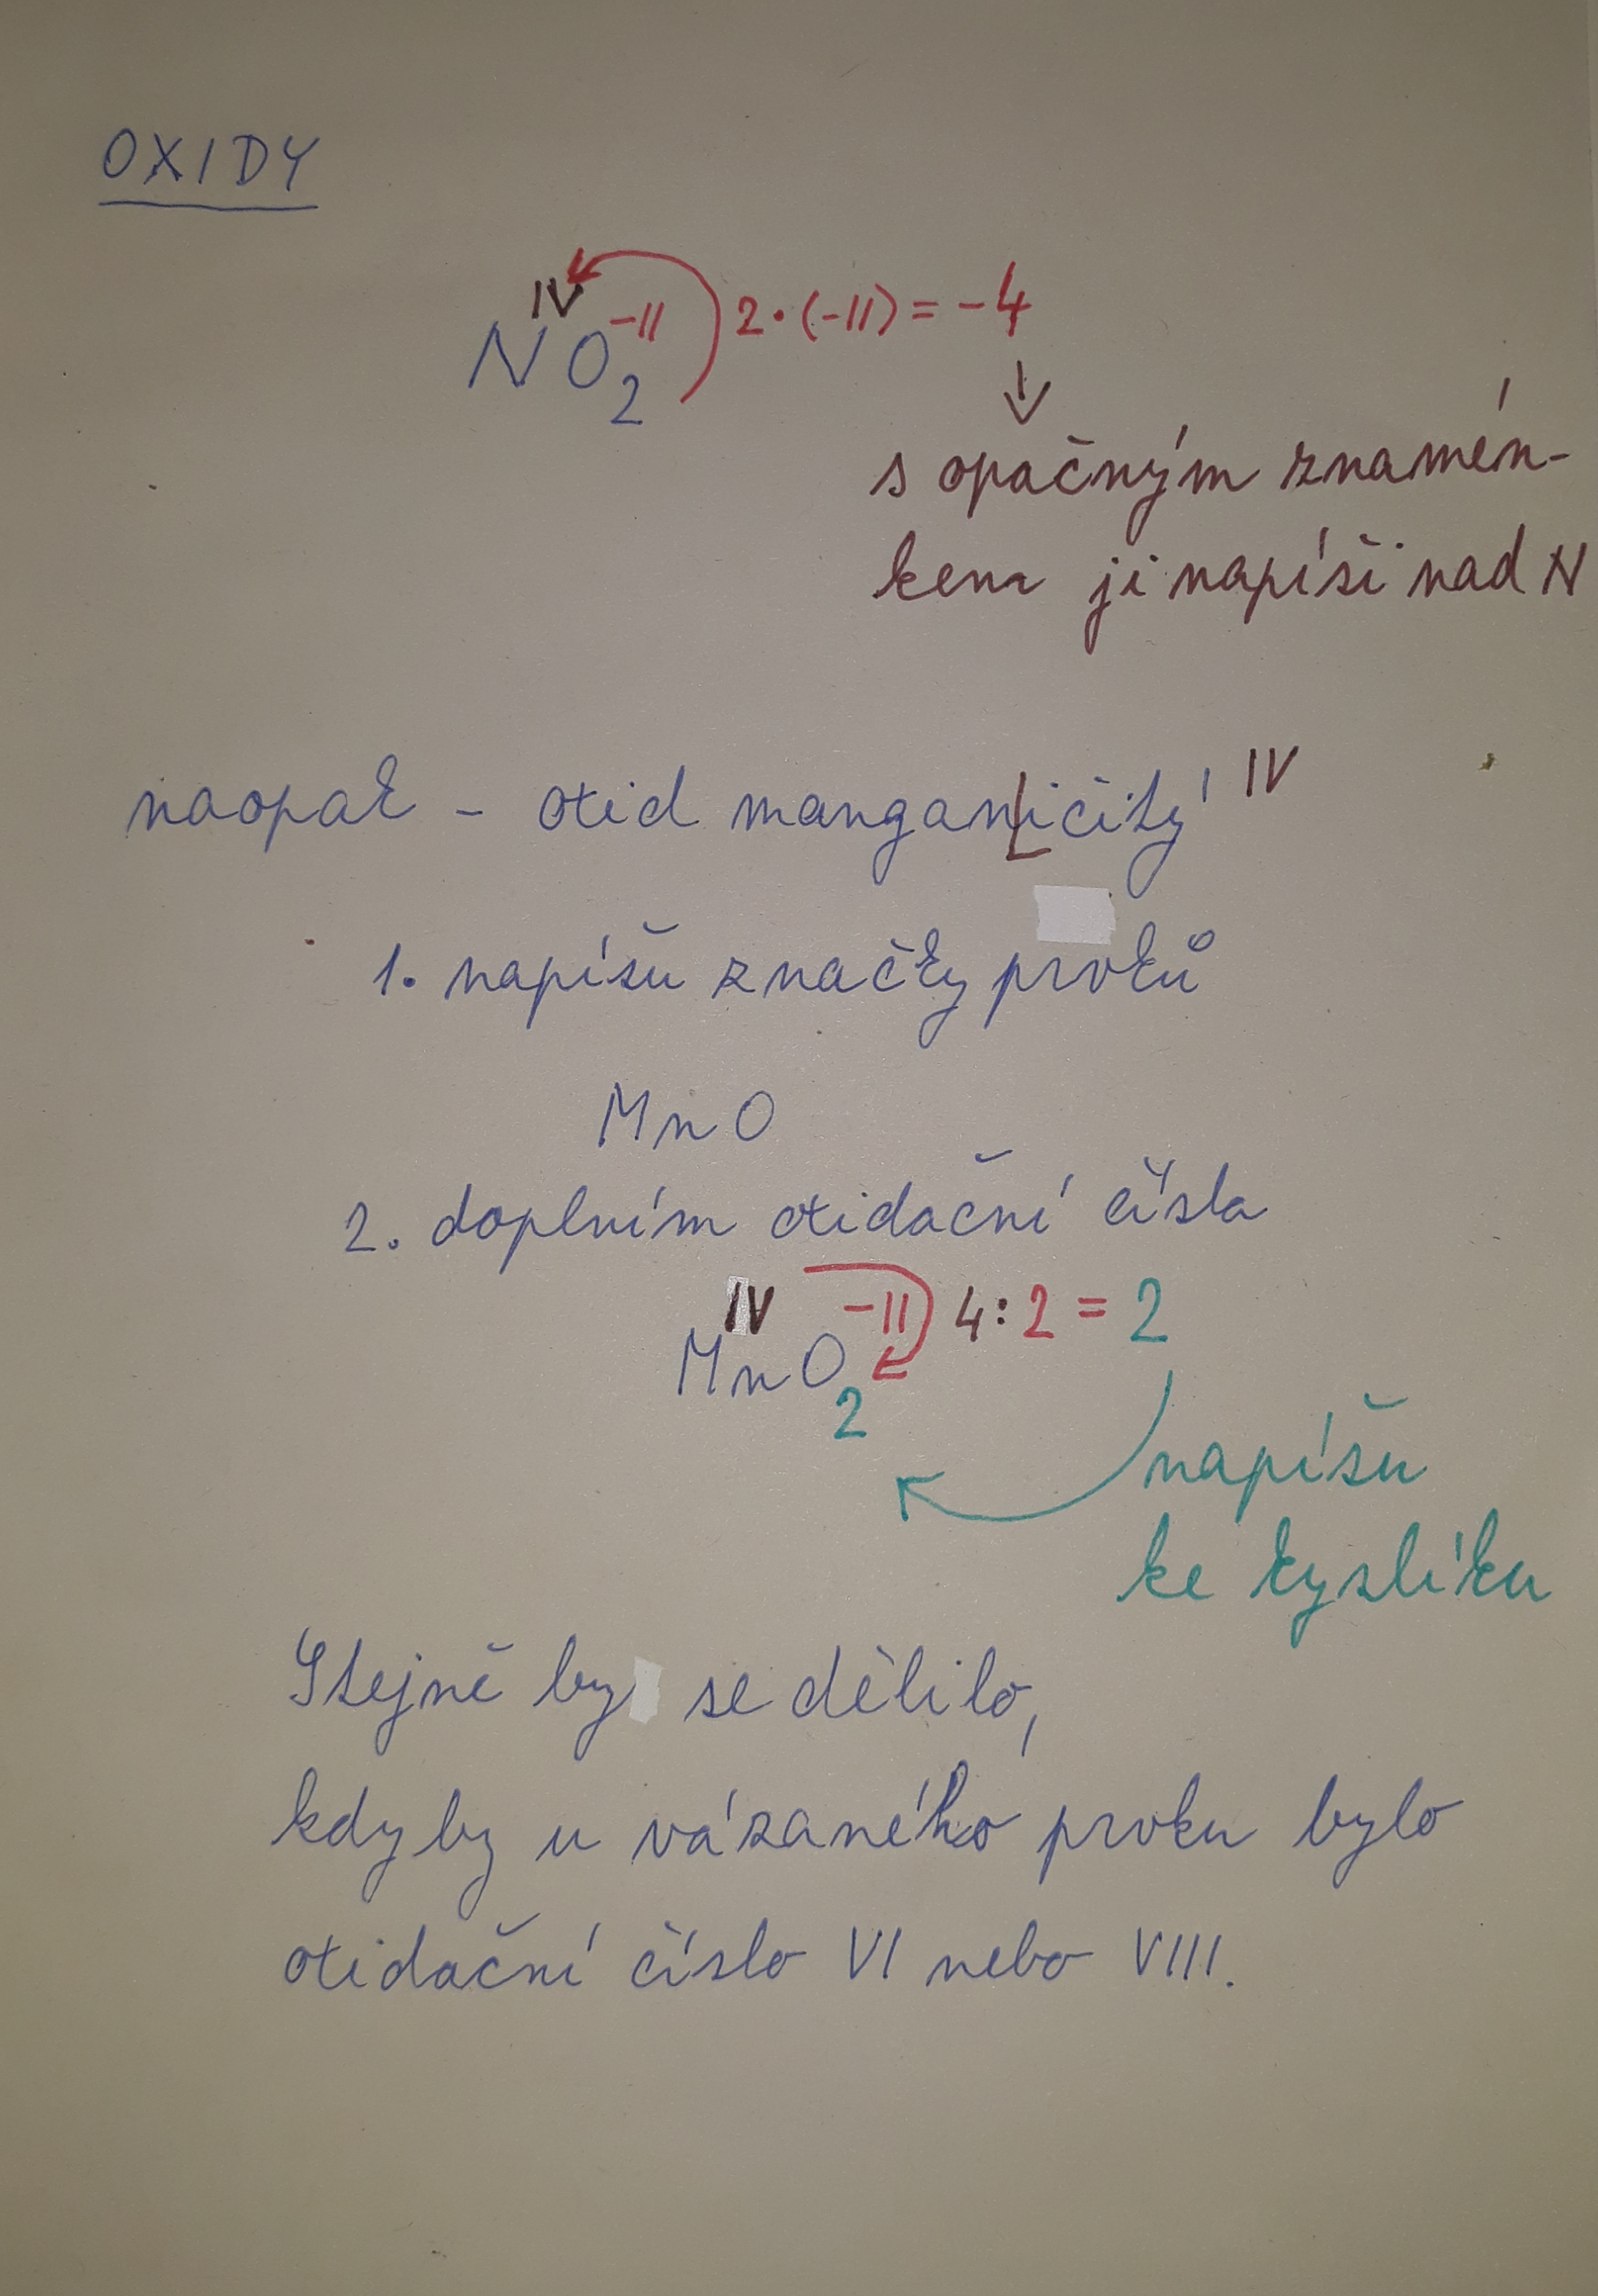 OXIDY
N^IV O_2^-II 2·(-II) = -4
s opačným znamén-
kem ji napíši nad N
naopak - oxid mangan|ičitý IV
1. napíšu značky prvků
MnO
2. doplním oxidační čísla
Mn^IV O_2^-II 4:2 = 2
napíšu
ke kyslíku
Stejně by se dělilo,
kdyby u vázaného prvku bylo
oxidační číslo VI nebo VIII.